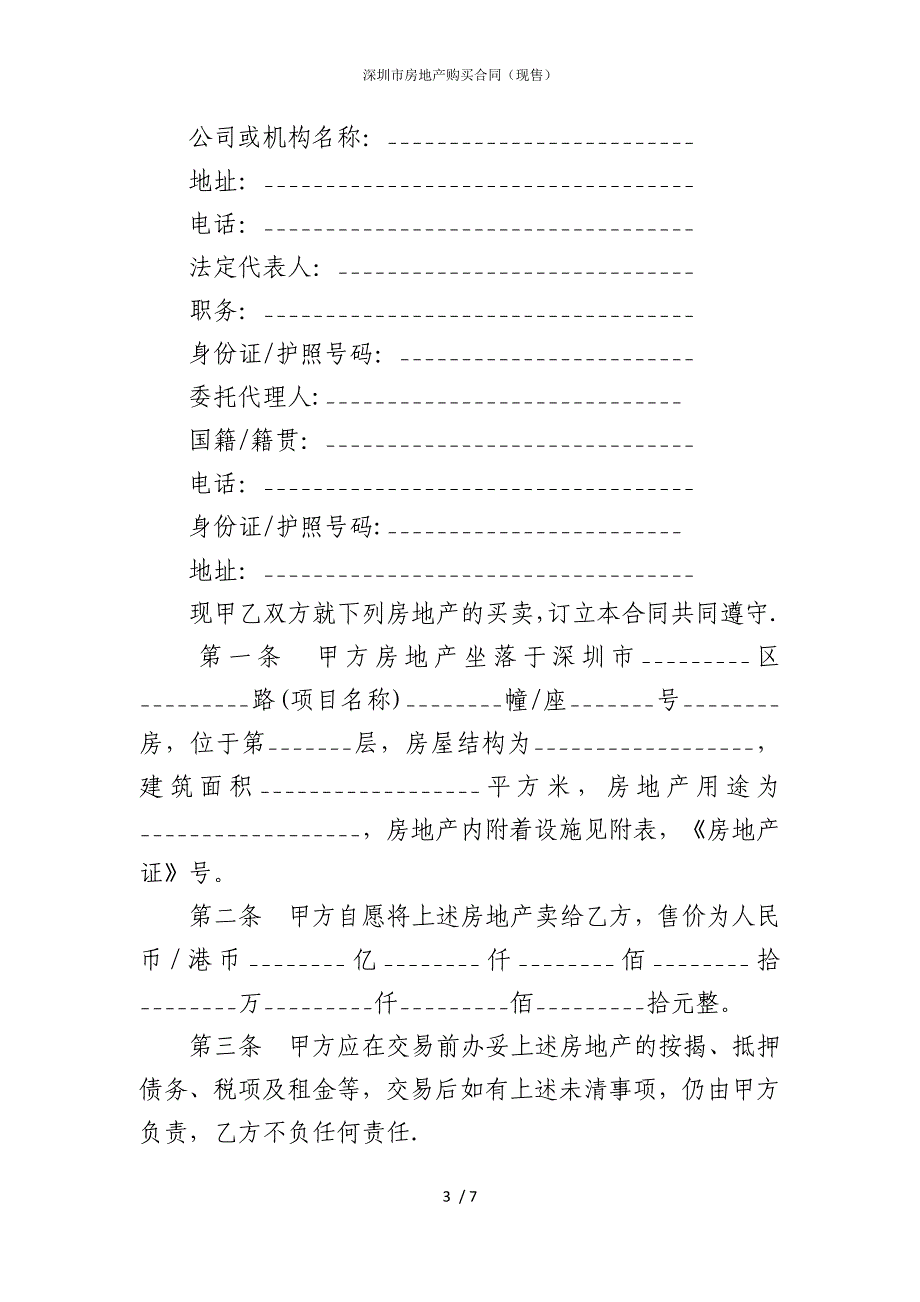 深圳市房地产购买合同（现售）
公司或机构名称：_________________________
地址：___________________________________
电话：___________________________________
法定代表人：_____________________________
职务：___________________________________
身份证/护照号码：________________________
委托代理人:_____________________________
国籍/籍贯：______________________________
电话：___________________________________
身份证/护照号码:________________________
地址：___________________________________
现甲乙双方就下列房地产的买卖,订立本合同共同遵守.
第一条　甲方房地产坐落于深圳市_________区
_________路(项目名称)________幢/座_______号________
房，位于第_______层，房屋结构为__________________，
建筑面积__________________平方米，房地产用途为
__________________，房地产内附着设施见附表，《房地产
证》号。
第二条　甲方自愿将上述房地产卖给乙方，售价为人民
币/港币________亿________仟________佰________拾
________万_________仟_________佰_________拾元整。
第三条　甲方应在交易前办妥上述房地产的按揭、抵押
债务、税项及租金等，交易后如有上述未清事项，仍由甲方
负责，乙方不负任何责任.
3 / 7